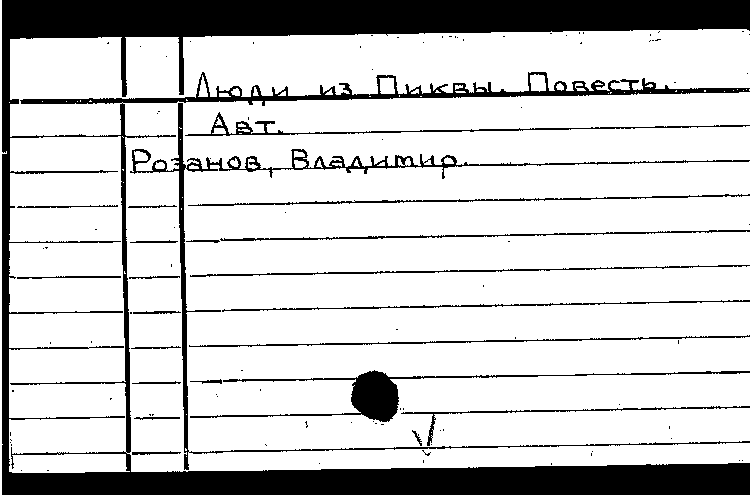 Люди из Пиквы. Повесть.
Авт.
Розанов, Владимир.